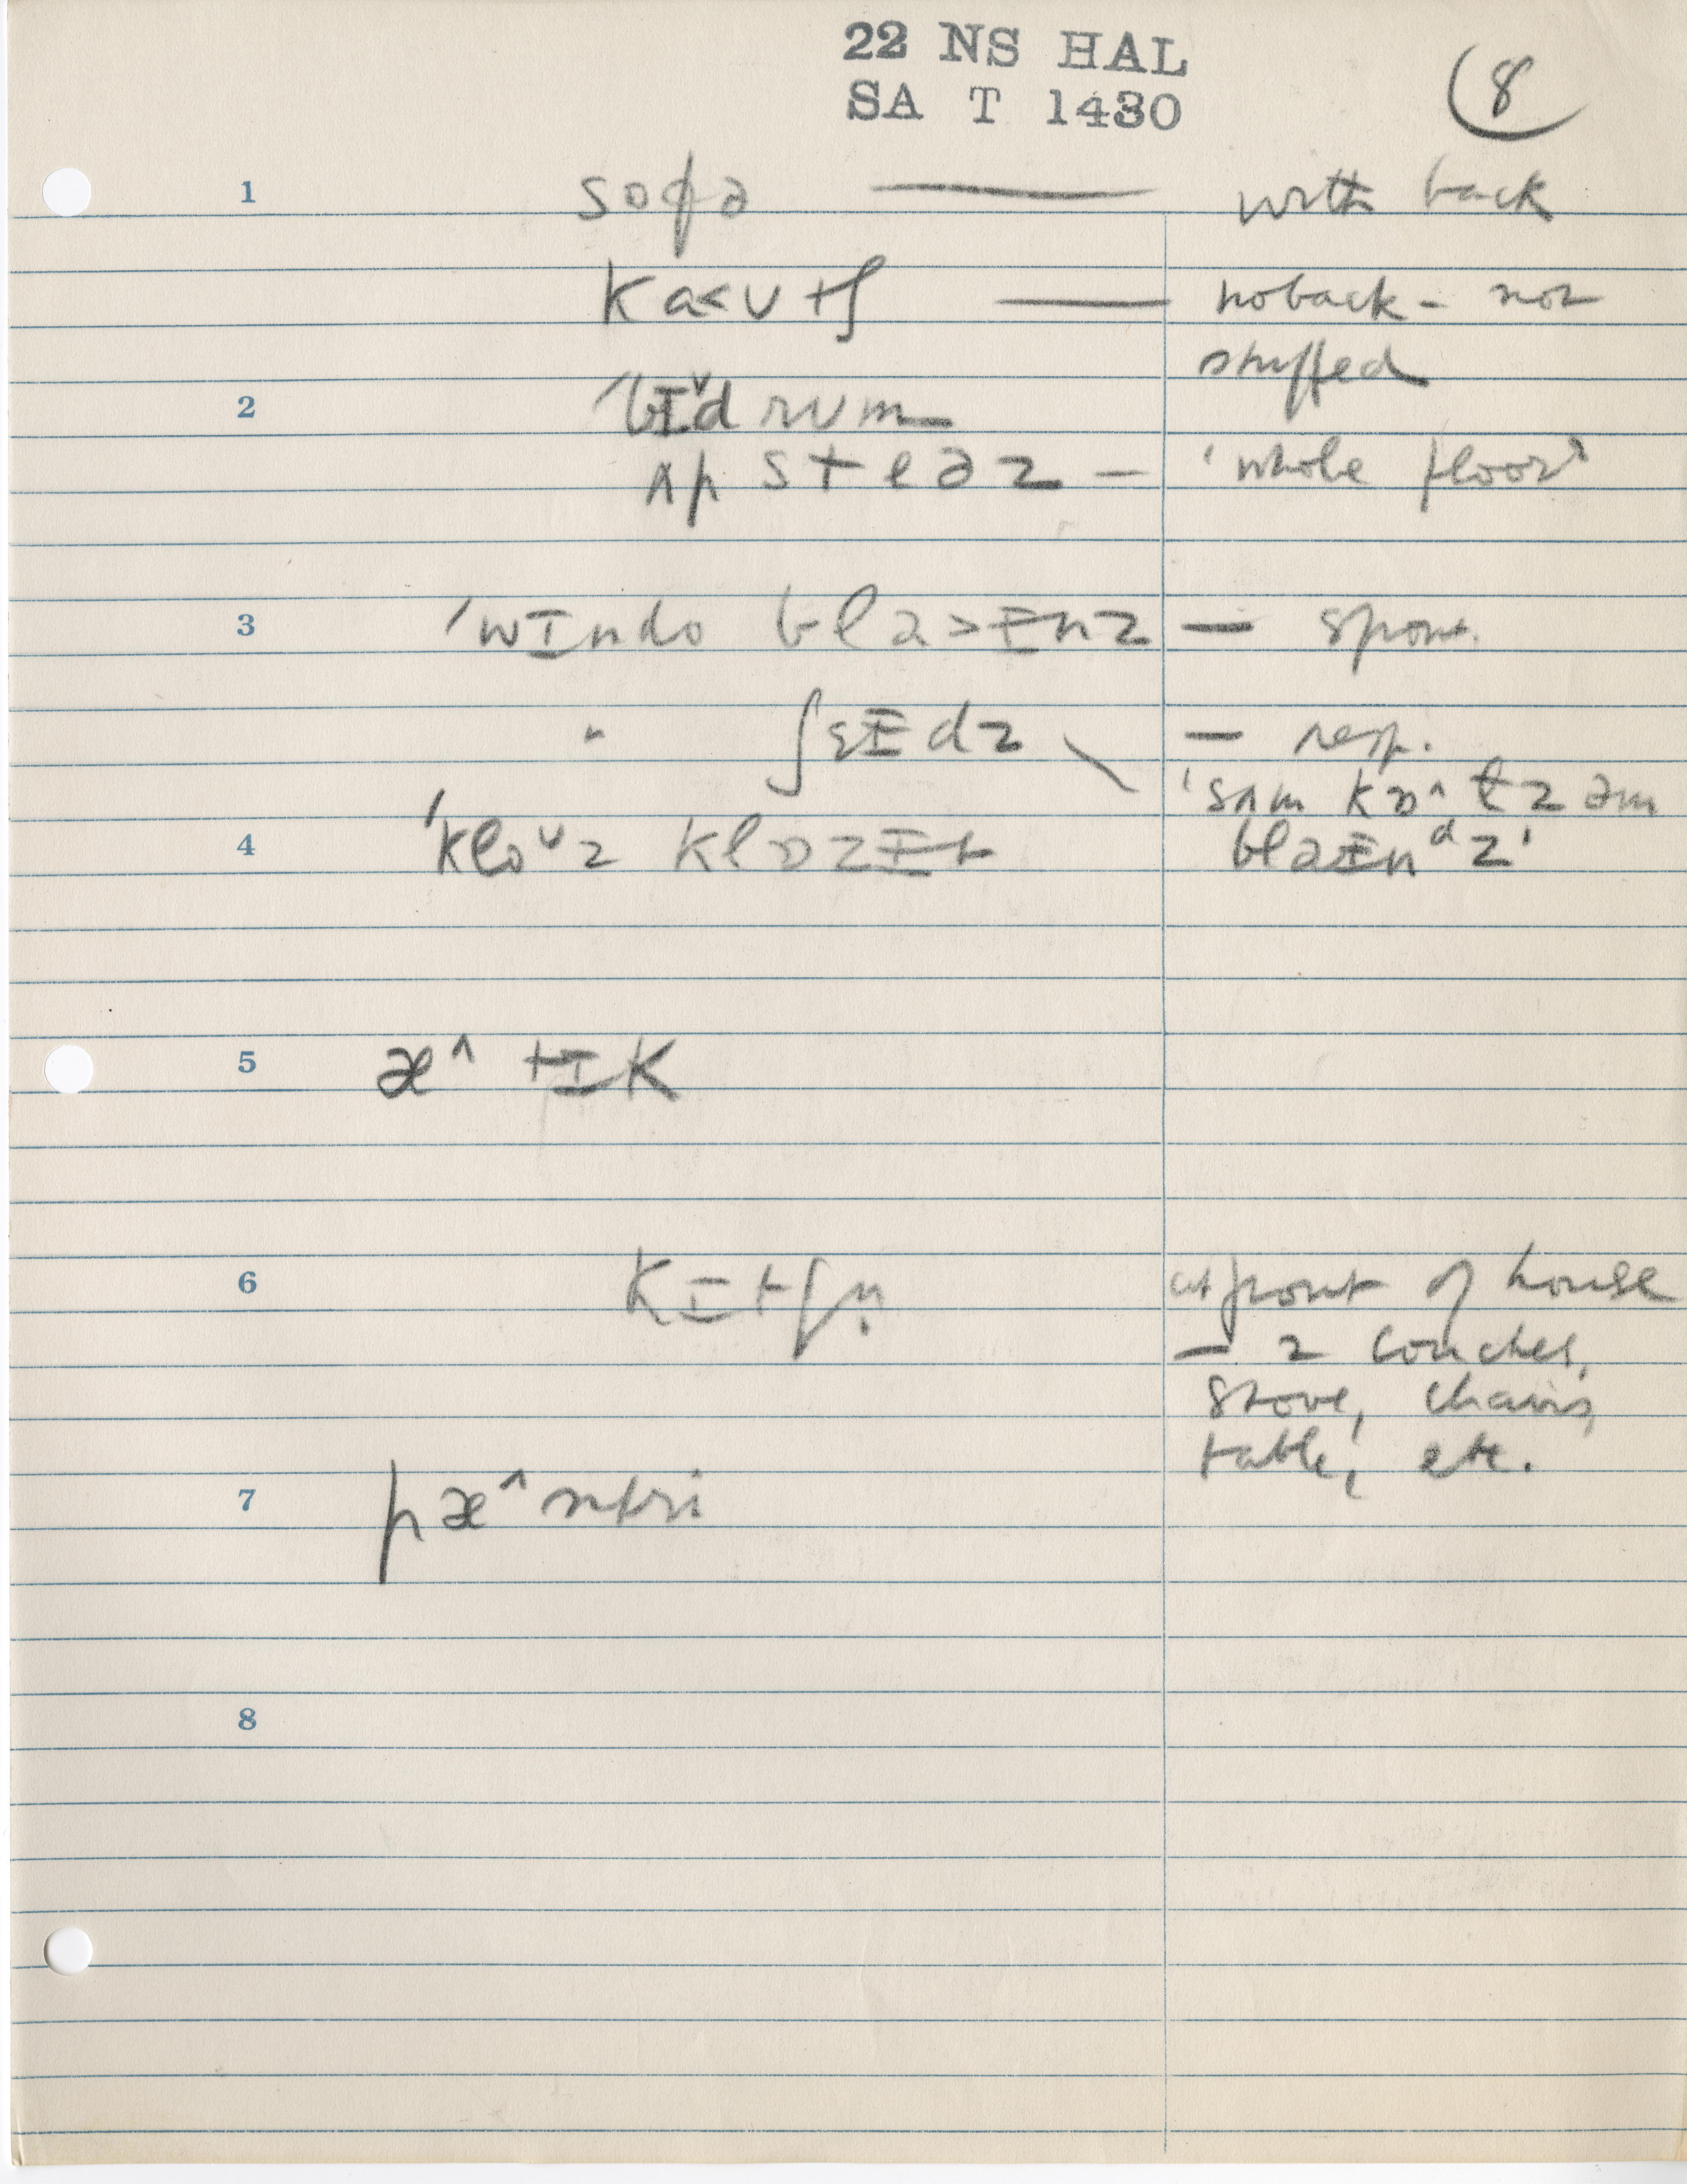 22 NS HAL
SA T 1430
8
1 soɸə — with back
ka<ʊtʃ — noback - not
stuffed
2 ˈbɪˇdrʊm
ʌpsteəz — 'whole floor'
3 ˈwɪndo bla>ɪnz — spont.
" ʃɛɪdz — resp.
'sʌm kɒ^lz əm
4 ˈkloˇz klɒzɪt blaɪnᵈz'
5 æ^tɪk
6 kɪtʃn̩ at front of house
— 2 couches,
stove, chairs,
table, etc.
7 pæ^ntri
8